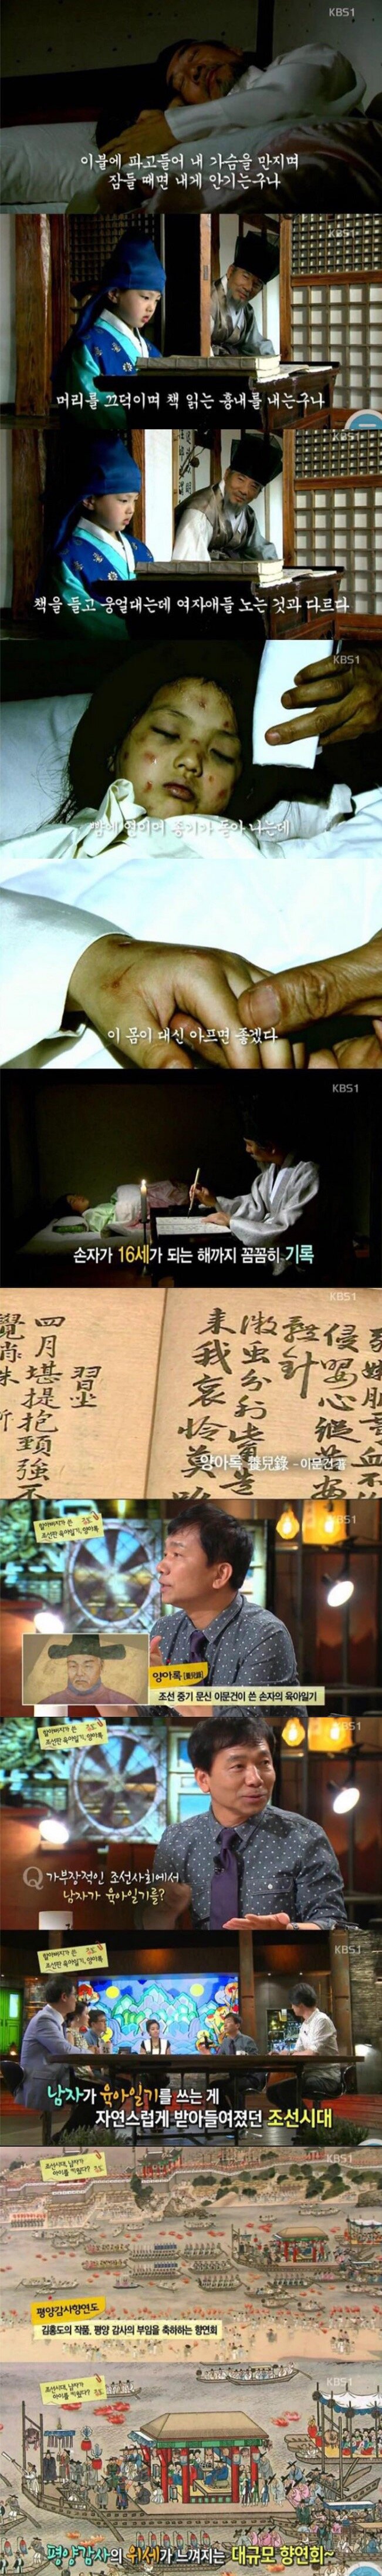 KBS1
이불에 파고들어 내 가슴을 만지며
잠들 때면 내게 안기는구나
KBS1
머리를 끄덕이며 책 읽는 흉내를 내는구나
KBS1
책을 들고 웅얼대는데 여자애들 노는 것과 다르다
KBS1
밤에 연이어 종기가 돋아 나는데
이 몸이 대신 아프면 좋겠다
KBS1
손자가 16세가 되는 해까지 꼼꼼히 기록
KBS1
四月堪提抱頸強不
習坐
양아록 養兒錄 - 이문건 著
KBS1
할아버지가 쓴
조선판 육아일기, 양아록
양아록 [養兒錄]
조선 중기 문신 이문건이 쓴 손자의 육아일기
KBS1
할아버지가 쓴
조선판 육아일기, 양아록
Q 가부장적인 조선사회에서
남자가 육아일기를?
KBS1
할아버지가 쓴
조선판 육아일기, 양아록
남자가 육아일기를 쓰는 게
자연스럽게 받아들여졌던 조선시대
KBS1
조선시대, 남자가
아이를 키웠다?
평양감사향연도
김홍도의 작품, 평양 감사의 부임을 축하하는 향연회
KBS1
조선시대, 남자가
아이를 키웠다?
평양감사의 위세가 느껴지는 대규모 향연회~